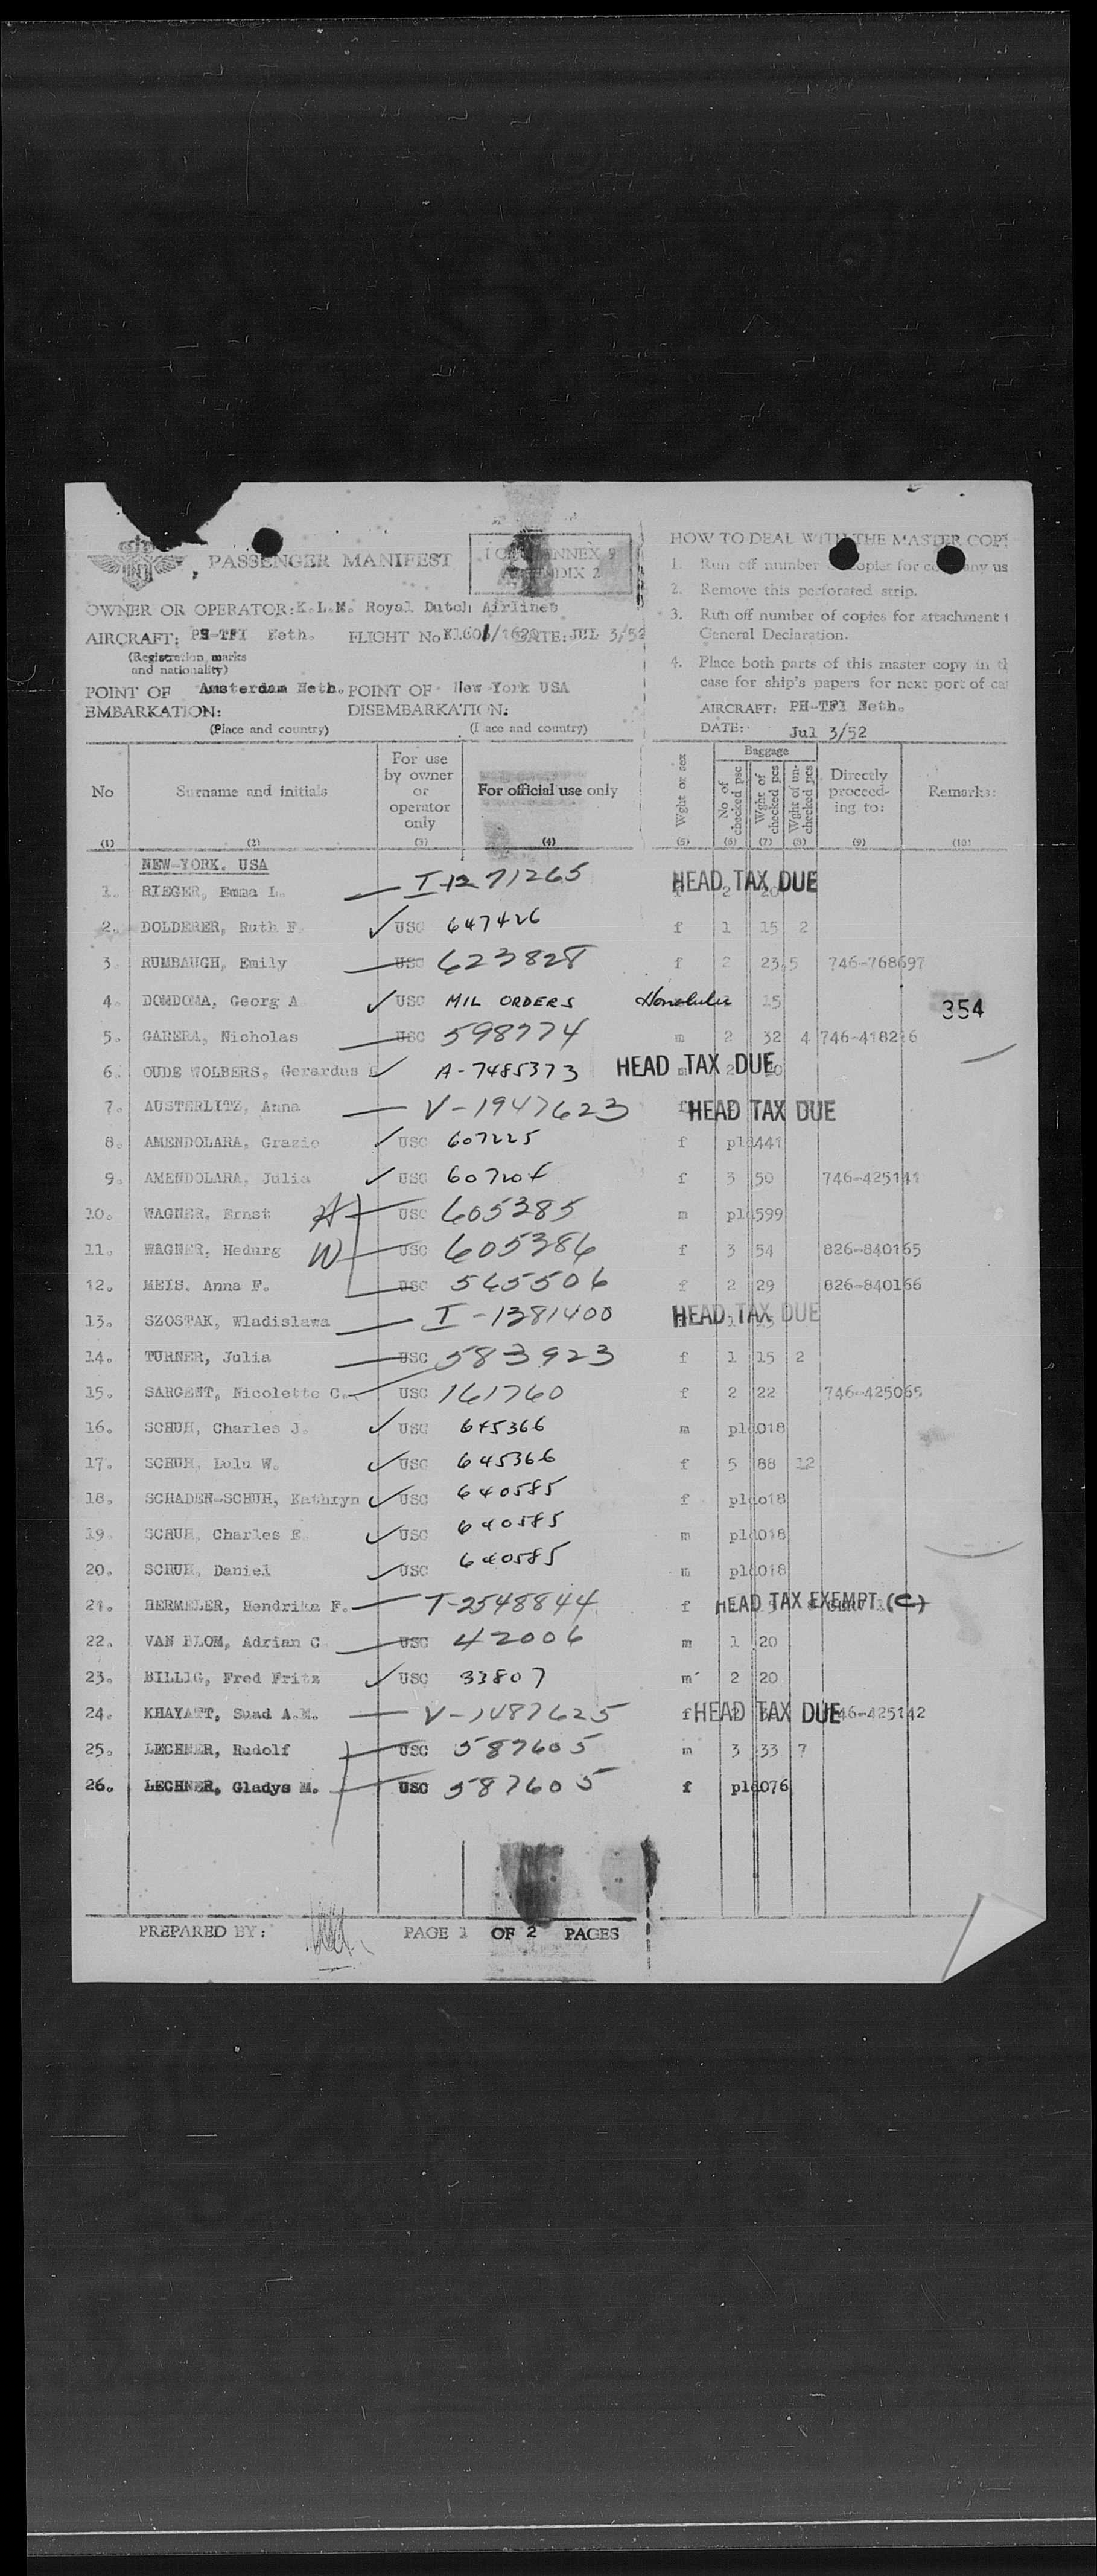 PASSENGER MANIFEST
ANNEX 9
APPENDIX 2
OWNER OR OPERATOR: K.L.M. Royal Dutch Airlines
AIRCRAFT: PH-TFI Neth. FLIGHT No DATE: JUL 3/52
(Registration marks
and nationality)
POINT OF Amsterdam Neth. POINT OF New York USA
EMBARKATION: DISEMBARKATION:
(Place and country) (Place and country)
HOW TO DEAL WITH THE MASTER COPY
1. Run off number copies for company us
2. Remove this perforated strip.
3. Run off number of copies for attachment t
General Declaration.
4. Place both parts of this master copy in th
case for ship's papers for next port of ca
AIRCRAFT: PH-TFI Neth.
DATE: Jul 3/52
No Surname and initials For use by owner or operator only For official use only Wght or sex Baggage No of checked psc Wght of checked pcs Wght of un-checked pcs Directly proceed-ing to: Remarks:
(1) (2) (3) (4) (5) (6) (7) (8) (9) (10)
NEW-YORK. USA
1. RIEGER, Emma L. I-1271265 HEAD TAX DUE 2 20
2. DOLDERER, Ruth F. USC 647426 f 1 15 2
3. RUMBAUGH, Emily USC 623828 f 2 23 5 746-768697
4. DOMDOMA, Georg A USC MIL ORDERS Honolulu 15
354
5. GARERA, Nicholas USC 598774 m 2 32 4 746-418216
6. OUDE WOLBERS, Gerardus A-7485373 HEAD TAX DUE m 2
7. AUSTERLITZ, Anna V-1947623 f HEAD TAX DUE
8. AMENDOLARA, Grazie USC 607225 f pld441
9. AMENDOLARA, Julia USC 607204 f 3 50 746-425141
10. WAGNER, Ernst USC 605285 m pld599
11. WAGNER, Hedurg W USC 605386 f 3 54 826-840165
12. MEIS. Anna F. USC 565506 f 2 29 826-840166
13. SZOSTAK, Wladislawa I-1381400 HEAD TAX DUE
14. TURNER, Julia USC 583923 f 1 15 2
15. SARGENT, Nicolette C. USC 161760 f 2 22 746-425065
16. SCHUH, Charles J. USC 645366 m pld018
17. SCHUH, Lulu W. USC 645366 f 5 88 12
18. SCHADEN-SCHUH, Kathryn USC 640585 f pld018
19. SCHUH, Charles E. USC 640585 m pld018
20. SCHUH, Daniel USC 640585 m pld018
21. HERMELER, Hendrika F. T-2548844 f HEAD TAX EXEMPT (C)
22. VAN BLOM, Adrian C USC 42006 m 1 20
23. BILLIG, Fred Fritz USC 33807 m 2 20
24. KHAYATT, Suad A.M. V-1487625 f HEAD TAX DUE 746-425142
25. LECHNER, Rudolf USC 587605 m 3 33 7
26. LECHNER, Gladys M. USC 587605 f pld076
PREPARED BY: PAGE 1 OF 2 PAGES